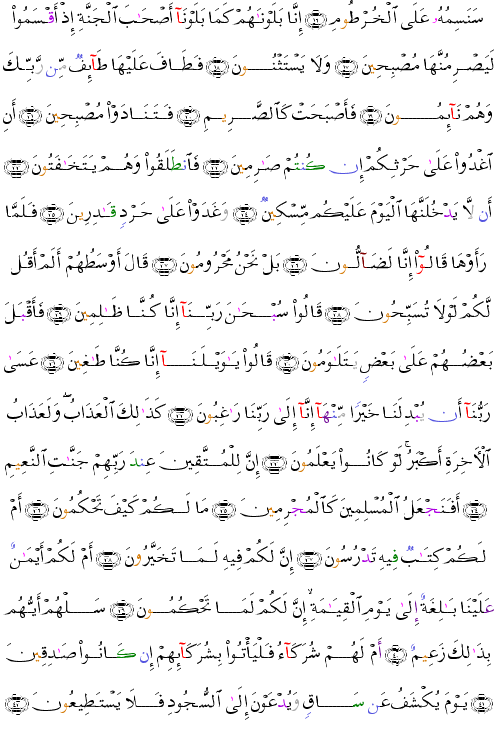 سَنَسِمُهُۥ عَلَى ٱلْخُرْطُومِ ۝١٦ إِنَّا بَلَوْنَـٰهُمْ كَمَا بَلَوْنَآ أَصْحَـٰبَ ٱلْجَنَّةِ إِذْ أَقْسَمُوا۟
لَيَصْرِمُنَّهَا مُصْبِحِينَ ۝١٧ وَلَا يَسْتَثْنُونَ ۝١٨ فَطَافَ عَلَيْهَا طَآئِفٌ مِّن رَّبِّكَ
وَهُمْ نَآئِمُونَ ۝١٩ فَأَصْبَحَتْ كَٱلصَّرِيمِ ۝٢٠ فَتَنَادَوْا۟ مُصْبِحِينَ ۝٢١ أَنِ
ٱغْدُوا۟ عَلَىٰ حَرْثِكُمْ إِن كُنتُمْ صَـٰرِمِينَ ۝٢٢ فَٱنطَلَقُوا۟ وَهُمْ يَتَخَـٰفَتُونَ ۝٢٣
أَن لَّا يَدْخُلَنَّهَا ٱلْيَوْمَ عَلَيْكُم مِّسْكِينٌ ۝٢٤ وَغَدَوْا۟ عَلَىٰ حَرْدٍ قَـٰدِرِينَ ۝٢٥ فَلَمَّا
رَأَوْهَا قَالُوٓا۟ إِنَّا لَضَآلُّونَ ۝٢٦ بَلْ نَحْنُ مَحْرُومُونَ ۝٢٧ قَالَ أَوْسَطُهُمْ أَلَمْ أَقُل
لَّكُمْ لَوْلَا تُسَبِّحُونَ ۝٢٨ قَالُوا۟ سُبْحَـٰنَ رَبِّنَآ إِنَّا كُنَّا ظَـٰلِمِينَ ۝٢٩ فَأَقْبَلَ
بَعْضُهُمْ عَلَىٰ بَعْضٍ يَتَلَـٰوَمُونَ ۝٣٠ قَالُوا۟ يَـٰوَيْلَنَآ إِنَّا كُنَّا طَـٰغِينَ ۝٣١ عَسَىٰ
رَبُّنَآ أَن يُبْدِلَنَا خَيْرًا مِّنْهَآ إِنَّآ إِلَىٰ رَبِّنَا رَٰغِبُونَ ۝٣٢ كَذَٰلِكَ ٱلْعَذَابُ ۖ وَلَعَذَابُ
ٱلْـَٔاخِرَةِ أَكْبَرُ ۚ لَوْ كَانُوا۟ يَعْلَمُونَ ۝٣٣ إِنَّ لِلْمُتَّقِينَ عِندَ رَبِّهِمْ جَنَّـٰتِ ٱلنَّعِيمِ
۝٣٤ أَفَنَجْعَلُ ٱلْمُسْلِمِينَ كَٱلْمُجْرِمِينَ ۝٣٥ مَا لَكُمْ كَيْفَ تَحْكُمُونَ ۝٣٦ أَمْ
لَكُمْ كِتَـٰبٌ فِيهِ تَدْرُسُونَ ۝٣٧ إِنَّ لَكُمْ فِيهِ لَمَا تَخَيَّرُونَ ۝٣٨ أَمْ لَكُمْ أَيْمَـٰنٌ
عَلَيْنَا بَـٰلِغَةٌ إِلَىٰ يَوْمِ ٱلْقِيَـٰمَةِ ۙ إِنَّ لَكُمْ لَمَا تَحْكُمُونَ ۝٣٩ سَلْهُمْ أَيُّهُم
بِذَٰلِكَ زَعِيمٌ ۝٤٠ أَمْ لَهُمْ شُرَكَآءُ فَلْيَأْتُوا۟ بِشُرَكَآئِهِمْ إِن كَانُوا۟ صَـٰدِقِينَ
۝٤١ يَوْمَ يُكْشَفُ عَن سَاقٍ وَيُدْعَوْنَ إِلَى ٱلسُّجُودِ فَلَا يَسْتَطِيعُونَ ۝٤٢